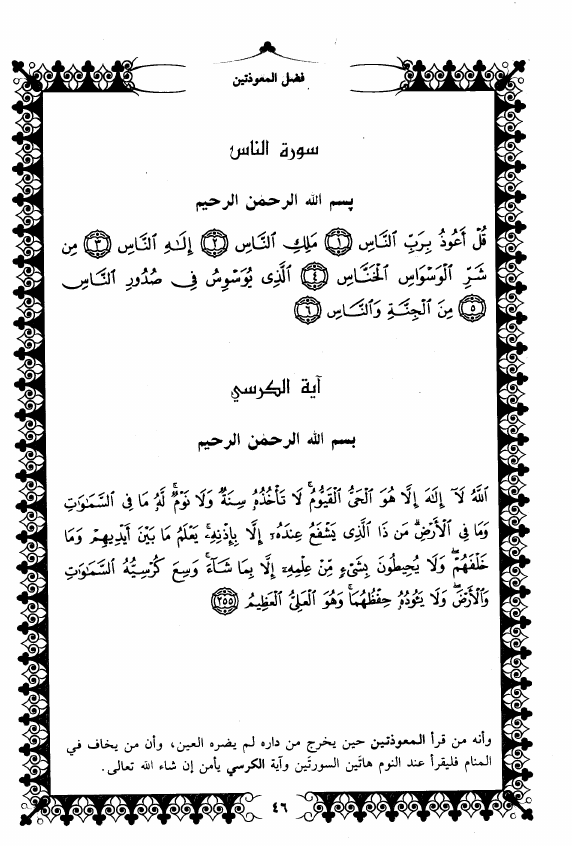 فضل المعوذتين
سورة الناس
بسم الله الرحمن الرحيم
قُلْ أَعُوذُ بِرَبِّ النَّاسِ ﴿١﴾ مَلِكِ النَّاسِ ﴿٢﴾ إِلَٰهِ النَّاسِ ﴿٣﴾ مِن
شَرِّ الْوَسْوَاسِ الْخَنَّاسِ ﴿٤﴾ الَّذِى يُوَسْوِسُ فِى صُدُورِ النَّاسِ
﴿٥﴾ مِنَ الْجِنَّةِ وَالنَّاسِ ﴿٦﴾
آية الكرسي
بسم الله الرحمن الرحيم
اللَّهُ لَآ إِلَٰهَ إِلَّا هُوَ الْحَىُّ الْقَيُّومُ ۚ لَا تَأْخُذُهُۥ سِنَةٌ وَلَا نَوْمٌ ۚ لَّهُۥ مَا فِى السَّمَٰوَٰتِ
وَمَا فِى الْأَرْضِ ۗ مَن ذَا الَّذِى يَشْفَعُ عِندَهُۥٓ إِلَّا بِإِذْنِهِۦ ۚ يَعْلَمُ مَا بَيْنَ أَيْدِيهِمْ وَمَا
خَلْفَهُمْ ۖ وَلَا يُحِيطُونَ بِشَىْءٍ مِّنْ عِلْمِهِۦٓ إِلَّا بِمَا شَآءَ ۚ وَسِعَ كُرْسِيُّهُ السَّمَٰوَٰتِ
وَالْأَرْضَ ۖ وَلَا يَـُٔودُهُۥ حِفْظُهُمَا ۚ وَهُوَ الْعَلِىُّ الْعَظِيمُ ﴿٢٥٥﴾
وأنه من قرأ المعوذتين حين يخرج من داره لم يضره العين، وأن من يخاف في
المنام فليقرأ عند النوم هاتين السورتين وآية الكرسي يأمن إن شاء الله تعالى.
٤٦